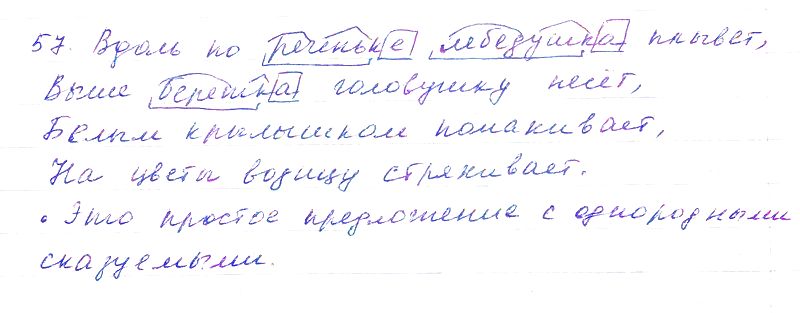 57. Вдоль по реченьке лебёдушка плывёт,
Выше бережка головушку несёт,
Белым крылышком помахивает,
На цветы водицу стряхивает.
• Это простое предложение с однородными
сказуемыми.